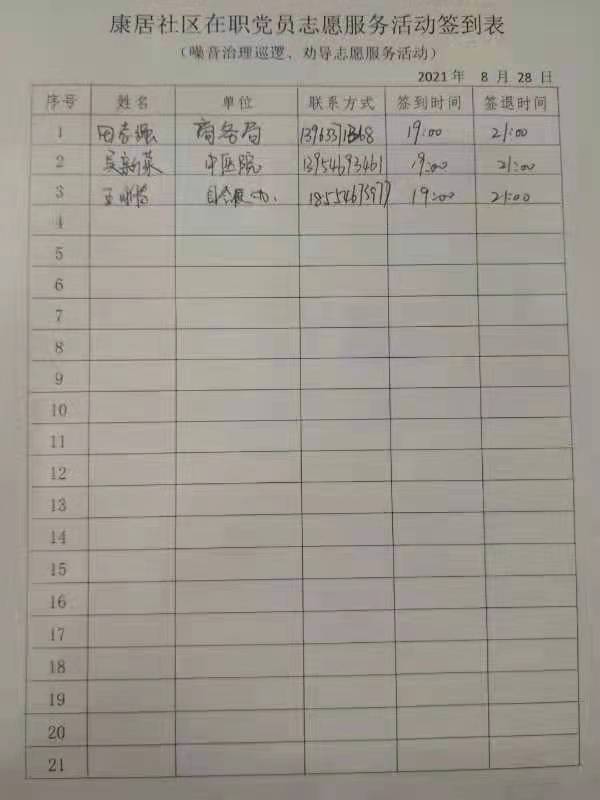 康居社区在职党员志愿服务活动签到表
（噪音治理巡逻、劝导志愿服务活动）
2021 年 8 月 28 日
序号 姓名 单位 联系方式 签到时间 签退时间
1 商务局 19:00 21:00
2 吴新英 中医院 13954693461 19:00 21:00
3 19:00 21:00
4
5
6
7
8
9
10
11
12
13
14
15
16
17
18
19
20
21